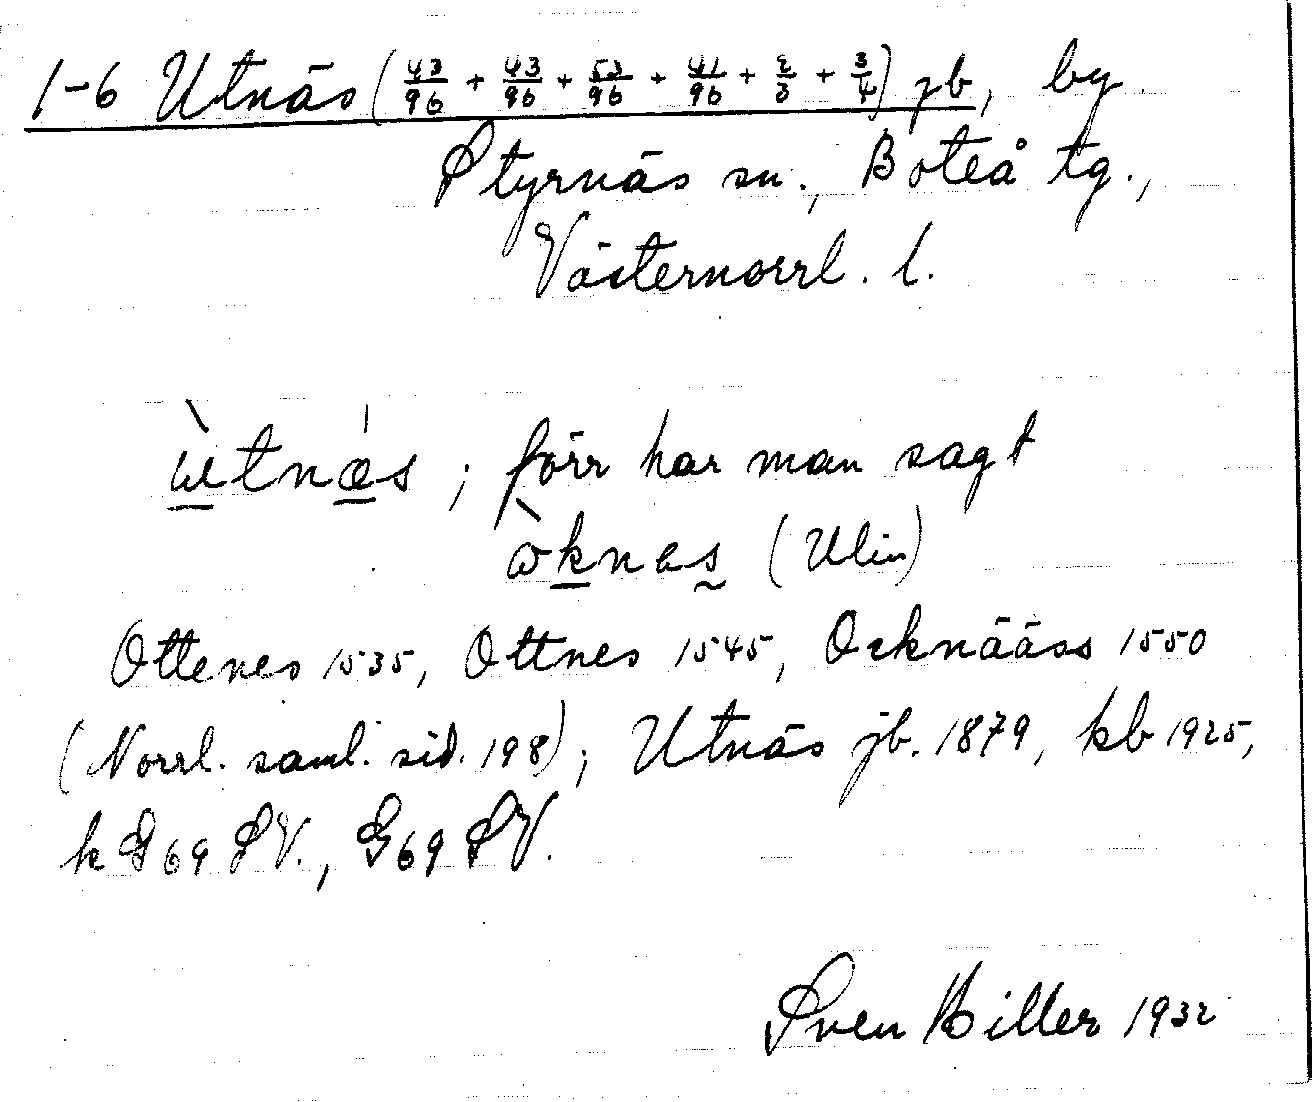 1-6 Utnäs (43/96 + 43/96 + 53/96 + 41/96 + 2/3 + 3/4) jb, by
Styrnäs sn., Boteå tg.,
Västernorrl. l.
ùtnǽs; förr har man sagt
ὼknas (Ulin)
Ottenes 1535, Ottnes 1545, Ocknääss 1550
(Norrl. saml. sid. 198); Utnäs jb. 1879, kb 1925,
k G 69 SV., G 69 SV.
Sven Hiller 1932